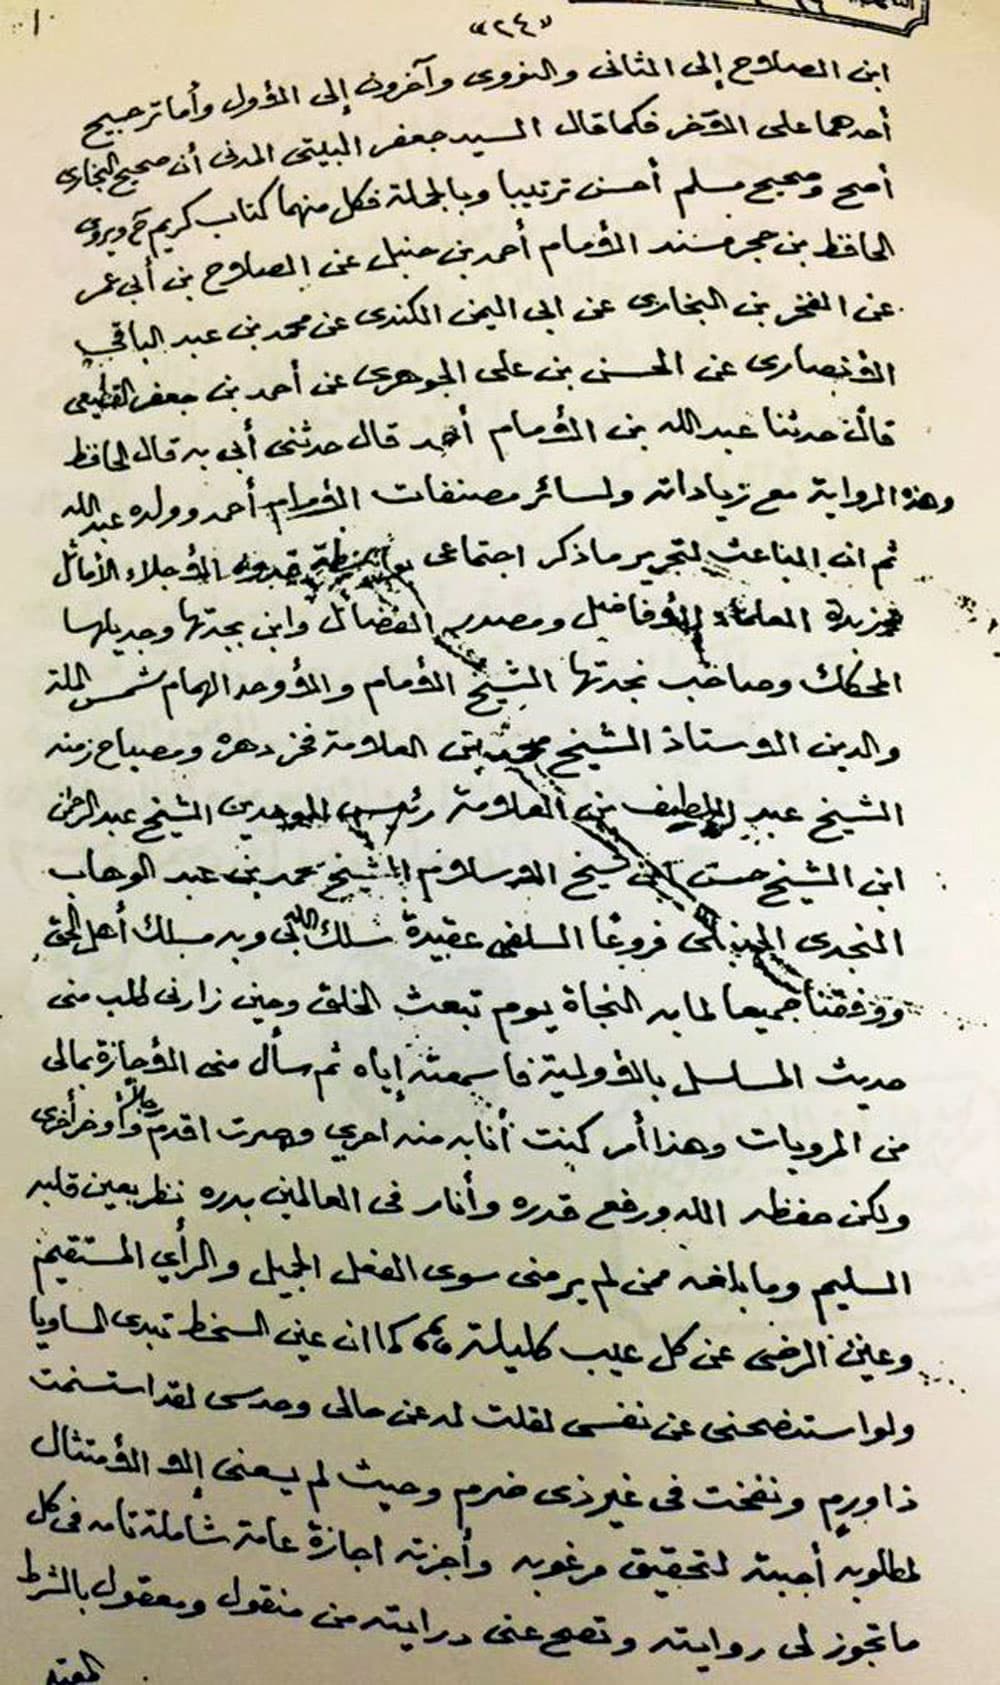 «٢٤»
ابن الصلاح إلى الثاني والنووي وآخرون إلى الأول وأما ترجيح
أحدهما على الآخر فكما قال السيد جعفر البيتي المدني أن صحيح البخاري
أصح وصحيح مسلم أحسن ترتيبا وبالجملة فكل منهما كتاب كريم ح ويروي
الحافظ بن حجر مسند الإمام أحمد بن حنبل عن الصلاح بن أبي عمر
عن الفخر بن البخاري عن أبي اليمن الكندي عن محمد بن عبد الباقي
الأنصاري عن الحسن بن علي الجوهري عن أحمد بن جعفر القطيعي
قال حدثنا عبد الله بن الإمام أحمد قال حدثني أبي به قال الحافظ
وهذه الرواية مع زياداته ولسائر مصنفات الإمام أحمد وولده عبد الله
ثم ان الباعث لتحرير ما ذكر اجتماعي قدوة الأجلاء الأماثل
زبدة العلماء الأفاضل ومصدر الفضائل وابن بجدتها وجذيلها
المحكك وصاحب نجدتها الشيخ الإمام والأوحد الهمام شمس الملة
والدين الأستاذ الشيخ محمد بن العلامة فخر دهره ومصباح زمنه
الشيخ عبد اللطيف بن العلامة رئيس الموحدين الشيخ عبد الرحمن
ابن الشيخ حسن ابن شيخ الإسلام الشيخ محمد بن عبد الوهاب
النجدي الحنبلي فروعًا السلفي عقيدة سلك الله بي وبه مسلك أهل الحق
ووفقنا جميعا لما به النجاة يوم تبعث الخلق وحين زارني طلب مني
حديث المسلسل بالأولية فأسمعته إياه ثم سأل مني الإجازة بمالي
من المرويات وهذا أمر كنت أنا به منه احرى وصرت اقدم رجلا وأوخر أخرى
ولكن حفظه الله ورفع قدره وأنار في العالمين بدره نظر بعين قلبه
السليم وما بلغه ممن لم ير مني سوى الفعل الجميل والرأي المستقيم
وعين الرضى عن كل عيب كليلة ،، كما ان عين السخط تبدي المساويا
ولو استفصحني عن نفسي لقلت له عن حالي وحدسي لقد استسمنت
ذا ورم ونفخت في غير ذي ضرم وحيث لم يسعني إلا الامتثال
لمطلوبه أجبته لتحقيق مرغوبه وأجزته اجازة عامة شاملة تامه في كل
ما تجوز لي روايته وتصح عني درايته من منقول ومعقول بالشرط
المعتبر